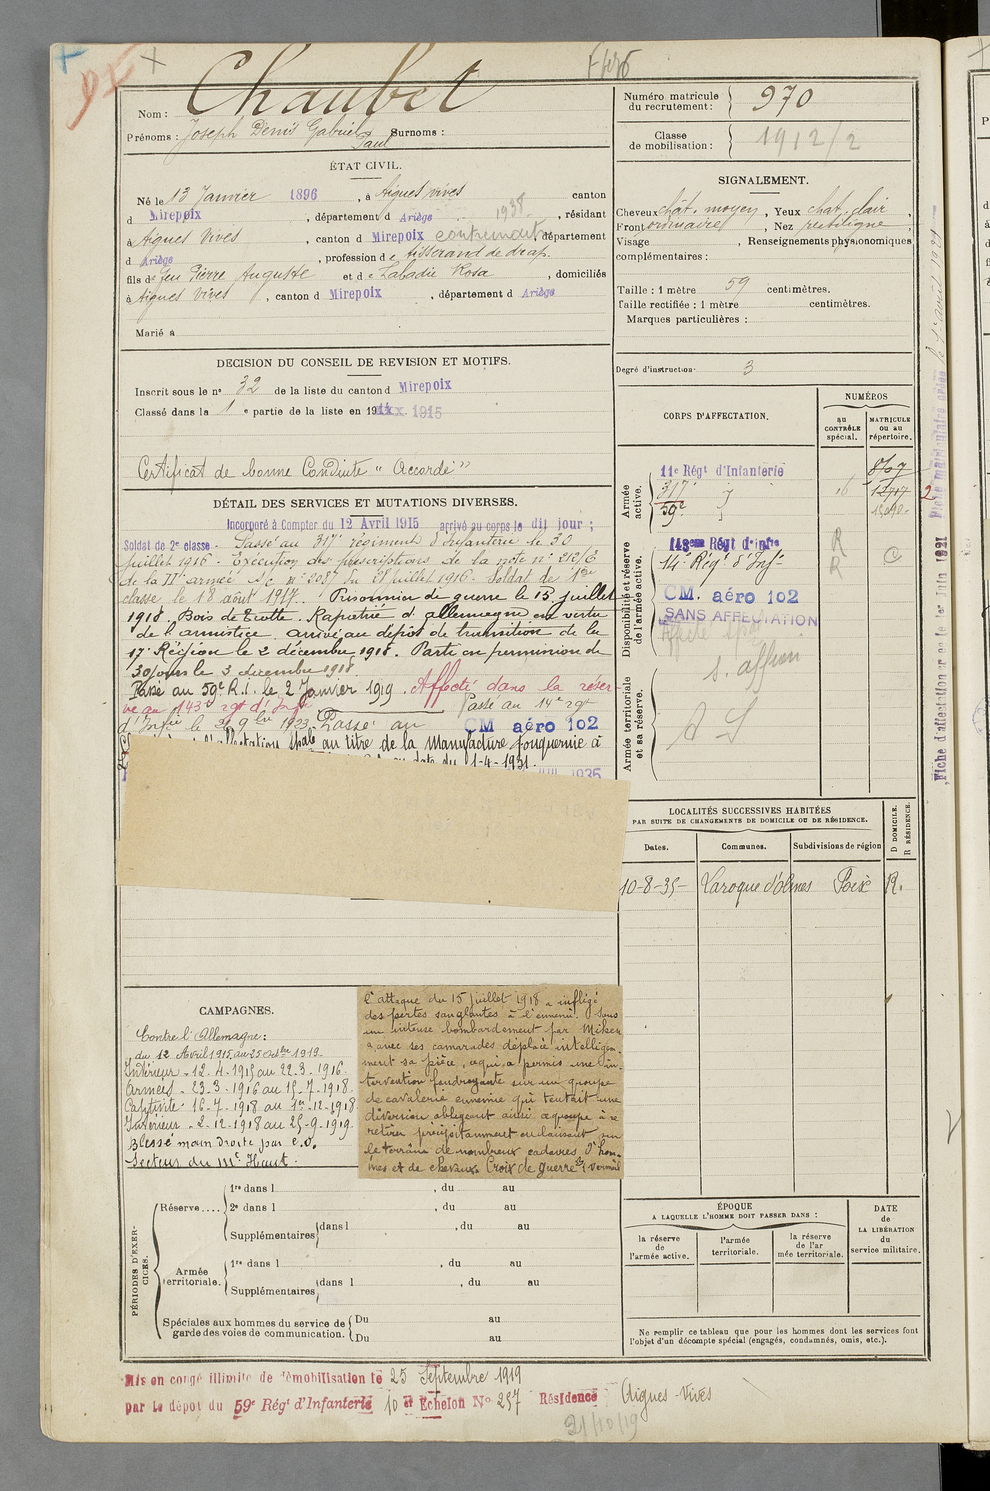 Nom : Chaubet
Prénoms : Joseph Denis Gabriel Paul Surnoms :
ÉTAT CIVIL.
Né le 13 Janvier 1896, à Aigues vives canton
d Mirepoix, département d Ariège 1938, résidant
à Aigues Vives, canton d Mirepoix département
d Ariège, profession d e tisserand de drap.
fils de feu Pierre Auguste et d e Labadie Rosa, domiciliés
à Aigues Vives, canton d Mirepoix, département d Ariège
Marié à
DECISION DU CONSEIL DE REVISION ET MOTIFS.
Inscrit sous le n° 32 de la liste du canton d Mirepoix
Classé dans la 1e partie de la liste en 1915
Certificat de bonne Conduite "Accordé"
DÉTAIL DES SERVICES ET MUTATIONS DIVERSES.
Incorporé à Compter du 12 Avril 1915 arrivé au corps le dit jour ;
Soldat de 2e classe. Passé au 317e régiment d'Infanterie le 30
juillet 1916. Exécution des prescriptions de la note n° 212/E
de la IIe armée du 28 juillet 1916. Soldat de 1ère
classe le 18 août 1917. Prisonnier de guerre le 15 juillet
1918. Bois de Rapatrié d'allemagne en vertu
de l'armistice. arrivé au dépôt de transition de la
17e Région le 2 décembre 1918. Parti en permission de
30 jours le 3 décembre 1918.
Passé au 59e R.I. le 2 Janvier 1919. Affecté dans la réser-
ve au 143e rgt d'Infie Passé au 14e rgt
d'Infie le 9bre 1923. Passé au CM aéro 102
l'affectation spale au titre de la Manufacture Fouquernie à
en date du 1-4-1931.
1935
CAMPAGNES.
Contre l'Allemagne :
du 12 Avril 1915 au 25 1919.
Intérieur - 12.4.1915 au 22.3.1916.
Armées - 23.3.1916 au 15.7.1918.
Captivité - 16.7.1918 au 1er.12.1918.
Intérieur - 2.12.1918 au 25.9.1919.
Blessé main droite par e.o.
Secteur du
l'attaque du 15 juillet 1918 a infligé
des pertes sanglantes à l'ennemi. Sous
un intense bombardement par
a avec ses camarades déplacé intelligem-
ment sa pièce, ce qui a permis une in-
tervention foudroyante sur un groupe
de cavalerie ennemie qui tentait une
diversion obligeant ainsi ce groupe à se
retirer précipitamment en laissant sur
le terrain de nombreux cadavres d'hom-
mes et de chevaux. Croix de guerre
PÉRIODES D'EXERCICES.
Réserve.... 1re dans l , du au
2e dans l , du au
Supplémentaires dans l , du au
Armée territoriale. 1re dans l , du au
Supplémentaires dans l , du au
Spéciales aux hommes du service de garde des voies de communication. Du au
Du au
Mis en congé illimité de démobilisation le 25 Septembre 1919
par le dépôt du 59e Régt d'Infanterie 10e Echelon N° 257 Résidence Aigues-Vives
31/10/19
Numéro matricule du recrutement : 970
Classe de mobilisation : 1912/2
SIGNALEMENT.
Cheveux chât. moyen, Yeux chat. clair,
Front ordinaire, Nez rectiligne,
Visage , Renseignements physionomiques
complémentaires :
Taille : 1 mètre 59 centimètres.
Taille rectifiée : 1 mètre centimètres.
Marques particulières :
Degré d'instruction 3
CORPS D'AFFECTATION.
NUMÉROS
au CONTRÔLE spécial.
MATRICULE ou au répertoire.
Armée active.
11e Régt d'Infanterie
317e
59e
Disponibilité et réserve de l'armée active.
143eme Régt d'Infie R
14e Régt d'Infie R
CM. aéro 102
SANS AFFECTATION
Affecté spal
s. affion
Armée territoriale et sa réserve.
A S
Fiche d'affectation le 1er Juin 1921
Fiche matriculaire le 1er Avril 1921
LOCALITÉS SUCCESSIVES HABITÉES
PAR SUITE DE CHANGEMENTS DE DOMICILE OU DE RÉSIDENCE.
Dates. Communes. Subdivisions de région D DOMICILE. R RÉSIDENCE.
10-8-35- Laroque d'olmes Foix R.
ÉPOQUE
A LAQUELLE L'HOMME DOIT PASSER DANS :
la réserve de l'armée active.
l'armée territoriale.
la réserve de l'ar mée territoriale.
DATE DE LA LIBÉRATION du service militaire.
Ne remplir ce tableau que pour les hommes dont les services font
l'objet d'un décompte spécial (engagés, condamnés, omis, etc.).